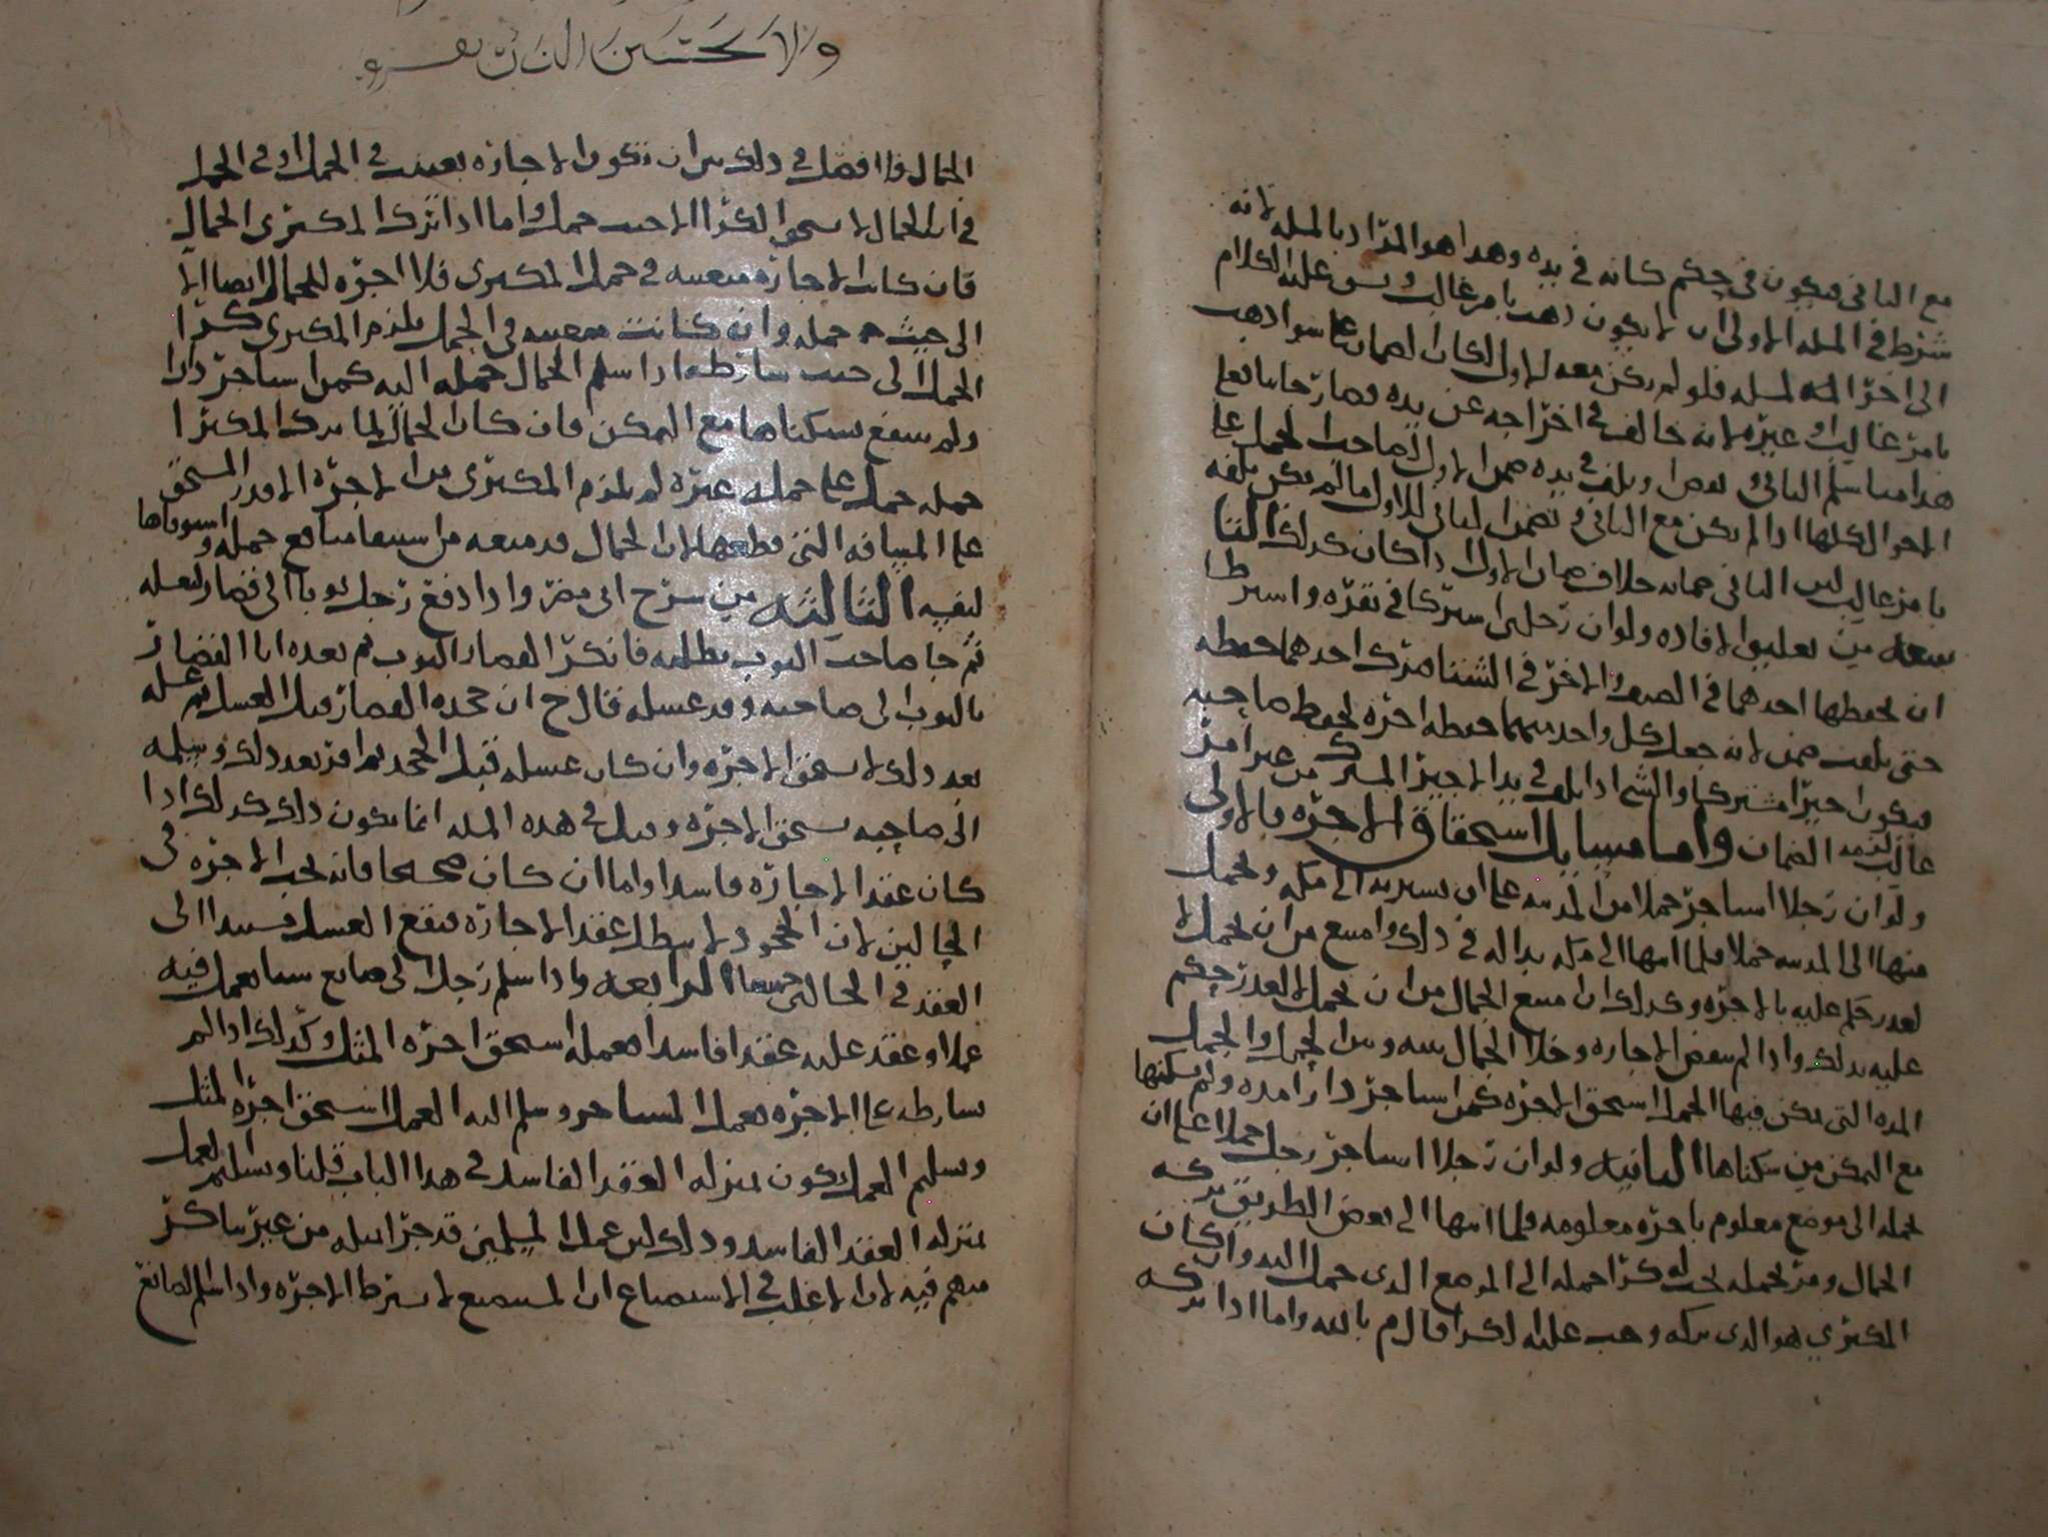 مع الثاني فيكون في حكم كانه في يده وهذا هو المراد بالمسله لانه
شرط في المسله الاولى ان لا يكون ذهب بامر غالب وسوى عليه الكلام
الى اخر المسله فلو لم يكن معه الاول لكان الضمان على سوا ذهب
بامر غالب او غيره لانه خالف في اخراجه عن يده فصار جانيا فعلى
هذا متى سلم الثاني وتلف في يده ضمن الاول لصاحب الحمل على
الاحوال كلها اذا لم يكن مع الثاني ويضمن الثاني للاول ما لم يكن تلفه
بامر غالب لان الثاني ضمانه خلاف ضمان الاول اذا كان كذلك الثالثا
من تعليق الافاده ولو ان رجلين اشتركا في بقره واشترطا
ان يحفظها احدهما في الصيف والاخر في الشتا فترك احدهما حفظه
حتى تلفت ضمن لانه جعل كل واحد منهما حفظه اجره لحفظ صاحبه
فيكون اجيرا مشتركا والشي اذا تلف في يد الاجير المشترك من غير امر
غالب لزمه الضمان واما مسايل استحقاق الاجره فالاولى
ولو ان رجلا استاجر جملا من المدينه على ان يسير به الى مكه ويحمل
منها الى المدينه حملا فلما انتهى الى مكه بدا له في ذلك وامتنع من ان يحمل لا
لعذر حكم عليه بالاجره وكذلك ان امتنع الجمال من ان يحمل لا لعذر حكم
عليه بذلك واذا لم ينقض الاجاره وخلا الجمال بينه وبين الجمل والحمل
المده التي يمكن فيها الحمل استحق الاجره كمن استاجر دارا مده ولم يسكنها
مع التمكن من سكناها الثانيه ولو ان رجلا استاجر رجل حملا على ان
يحمله الى موضع معلوم باجره معلومه فلما انتهى الى بعض الطريق تركه
الجمال ومر لحمله يجب له كرا حمله الى الموضع الذي حمل اليه وان كان
المكتري هو الذي تركه وجب عليه الكرا قال م بالله واما اذا تركه
ولا تحسبن الذين يفرو
الجمال فالفصل في ذلك بين ان تكون الاجازه تعينت في الجمل او في الحمل
في ان الجمال لا يستحق الكرا الا حيث حمل واما اذا ترك المكتري الجمال
فان كانت الاجازه متعينه في حمل المكتري فلا اجره للجمال ايضا الا
الى حيث حمله وان كانت متعينه في الجمل يلزم المكتري كرا
الجمل الى حيث شارطه اذا سلم الجمال جمله اليه كمن استاجر دارا
ولم ينتفع بسكناها مع التمكن فان كان الجمال لما ترك المكترا
حمله حمل على جمله غيره لم يلزم المكتري من الاجره الا قدر المستحق
على المسافه التي قطعها لان الجمال قد منعه من استيفا منافع جمله واستوفاها
لنفسه الثالثه من شرح ابي مضر واذا دفع رجل ثوبا الى قصار ليغسله
ثم جا صاحب الثوب يطلبه فانكر القصار الثوب ثم بعده اتا القصار
بالثوب الى صاحبه وقد غسله قال ح ان جحده القصار قبل الغسل ثم غسله
بعد ذلك لا يستحق الاجره وان كان غسله قبل الجحد ثم اقر بعد ذلك وسلمه
الى صاحبه يستحق الاجره وقيل في هذه المسله انما يكون ذلك كذلك اذا
كان عقد الاجازه فاسدا واما ان كان صحيحا فانه يجب الاجره في
الحالين لان الجحود لا يبطل عقد الاجازه فيقع الغسل مستندا الى
العقد في الحالتين جميعا الرابعه واذا سلم رجل الى صانع شيا يعمل فيه
عملا وعقد عليه عقدا فاسدا فعمله استحق اجره المثل وكذلك اذا لم
يشارطه على الاجره فعمل المستاجر وسلم اليه العمل استحق اجره المثل
وتسليم العمل يكون بمنزله العقد الفاسد في هذا الباب قلنا وتسليم العمل
بمنزله العقد الفاسد وذلك لان عمل المسلمين قد جرا بمثله من غير تناكر
منهم فيه لان الاغلب في الاستصناع ان المستصنع لا يشترط الاجره واذا سلم الصانع